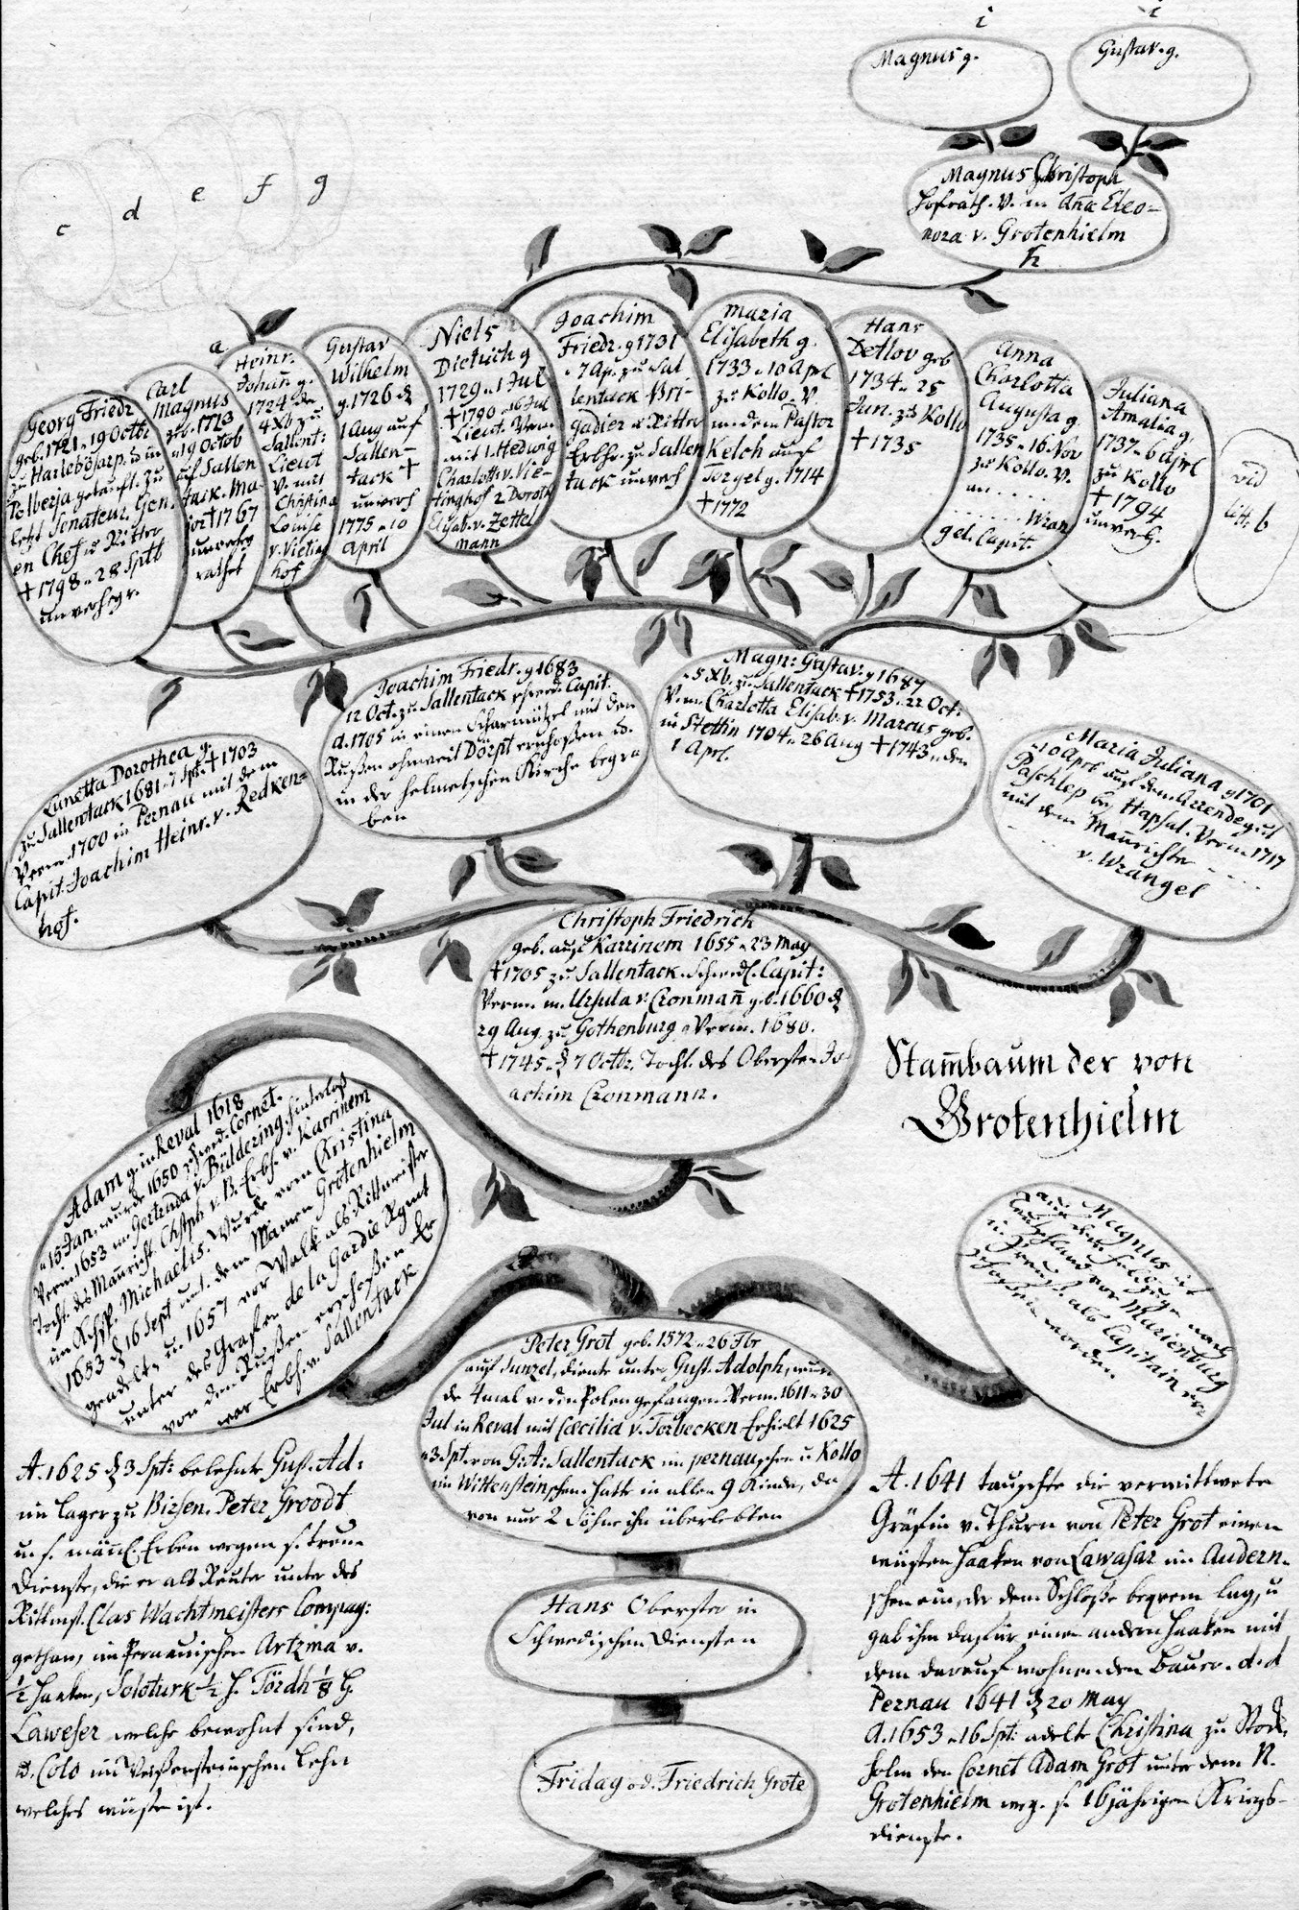 i
i
Magnus g.
Gustav. g.
Magnus Christoph
Hofrath. V. m Aña Eleo-
nora v. Grotenhielm
h
c
d
e
f
g
a
Georg Friedr
geb. 1721. 19 Octbr
zu
getauft. zu
letzt Senateur, Gen.
en Chef u Ritter
† 1798. 28 Sptb
unverh
Carl
Magnus
geb. 1723
19 Octob
auf Sallen
tack. Ma-
jor † 1767
unverhey
rathet
Heinr.
Johañ g.
1724 den
4 Xb zu
Sallent:
Lieut
V. mit
Christina
Louise
v. Vieting
hof
Gustav
Wilhelm
g. 1726 d
1 Aug auf
Sallen-
tack †
unverh
1775. 10
April
Niels
Dietrich g
1729. 1 Jul
† 1790. 16 Jul
Lieut. Verm
mit 1. Hedwig
Charlotta v. Vie-
tinghof 2 Doroth
Elisab. v. Zettel
mann
Joachim
Friedr. g 1731
7 Ap. zu Sal
lentack Bri-
gadier u Ritter
Erbhr. zu Sallen
tack unverh
Maria
Elisabeth g.
1733. 10 Apr
zu Kollo. V.
m. dem Pastor
Kelch auf
Torgel g. 1714
† 1772
Hans
Detlov geb
1734. 25
Jun. zu Kollo
† 1735
Anna
Charlotta
Augusta g.
1735. 16 Nov
zu Kollo. V.
an . . . . .
. . . . . . Wran
gel. Capit.
Juliana
Amalia g.
1737. 6 April
zu Kollo
† 1794
unverh.
vid
litt. b
Lunetta Dorothea g.
zu Sallentack 1681. 7 Spt. † 1703
Verm. 1700 in Pernau mit dem
Capit. Joachim Heinr. v. Redken-
hof.
Joachim Friedr. g 1683
12 Oct. zu Sallentack schwed. Capit.
d. 1705 in einem Scharmützel mit den
Rußen ohnweit Dörpt erschoßen u.
in der Helmetschen Kirche begra
ben
Magn: Gustav: g 1687
5. Xb. zu Sallentack † 1753. 22 Oct:
V. m. Charlotta Elisab. v. Marcus geb.
in Stettin 1704. 26 Aug † 1743. den
1 Apr.
Maria Juliana g 1701
10 Apr auf dem Arrendegut
Paschlep bey Hapsal. Verm. 1717
mit dem Mañrichter
. . . . . . . .
v. Wrangel
Christoph Friedrich
geb. auf Karrinem 1655. 23 May
† 1705 zu Sallentack. Schwed. Capit:
Verm. m. Ursula v. Cronmañ geb. 1660 d
29 Aug zu Gothenburg. Verm. 1680.
† 1745. d 7 Octbr. Tocht. des Obersten Jo
achim Cronmann.
Stam̃baum der von
Grotenhielm
Adam g. in Reval 1618
15 Jan. wurde 1650 schwed. Cornet.
Verm 1653 m. Gertruda v. Büldering, hinterlaß
Tocht. des Mañricht. Chstph v. B. Erbh. v. Karrinem
im Kchsp. Michaelis. Wurde von Christina
1653 d 16 Sept unt. dem Namen Grotenhielm
geadelt, u 1657 vor Walk als Rittmeister
unter des Grafen de la Gardie Rgmt
von den Rußen erschoßen. Er
war Erbh. v. Sallentack
Magnus ist
auf dem Feldzuge nach
Teutschland vor Marienburg
in Preuß. als Capitain er-
schoßen worden
Peter Grot geb. 1572. 26 Fbr
auf Sunzel, diente unter Gust. Adolph, wur
de 4mal v. den Polen gefangen. Verm. 1611. 30
Jul in Reval mit Cæcilia v. Torbecken Erhielt 1625
3 Spt. von G: A: Sallentack im pernauschen u Kollo
im Wittensteinschen. Hatte in allen 9 Kinder, da
von nur 2 Söhne ihn überlebten
Hans Oberster in
Schwedischen Diensten
Fridag od. Friedrich Grote
A. 1625 d 3 Spt: belehnte Gust. Ad:
im Lager zu Birsen. Peter Groodt
u. s. mäñl. Erben wegen s. treuen
Dienste, die er als Reuter unter des
Rittmst. Clas Wachtmeisters Compag:
gethan, im Pernauischen Artzma v.
½ Haaken, Soloturk ½ H. Tördh ⅛ H.
Laweser welche bewohnt sind,
u. Colo im Weißensteinschen Lehn
welches wüste ist.
A. 1641 tauschte die verwittwete
Gräfin v. Thurn von Peter Grot einen
wüsten Haaken von Lawasar im Audern-
schen ein, der dem Schloße beqvem lag, u
gab ihm dafür einen andern Haaken mit
dem darauf wohnenden Bauer. d. d
Pernau 1641 d 20 May
A. 1653. 16 Spt: adelte Christina zu Stock
holm den Cornet Adam Grot unter dem N.
Grotenhielm weg. s. 16jährigen Kriegs-
dienste.